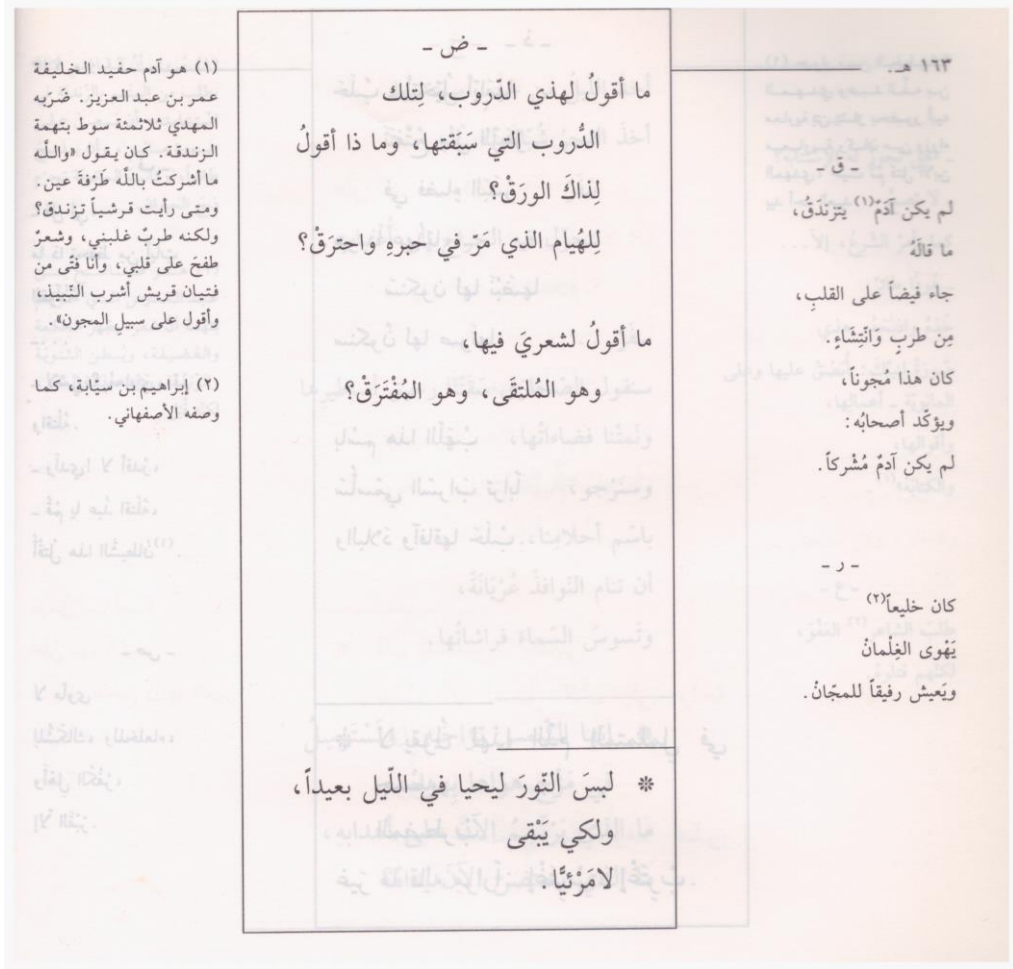 ١٦٣ هـ.
- ق -
لم يكن آدَمٌ(١) يتزندَقُ،
ما قالَهُ
جاء فيضاً على القلبِ،
مِن طربٍ وَانْتِشَاءٍ.
كان هذا مُجوناً،
ويؤكّد أصحابُه:
لم يكن آدمٌ مُشْركاً.
- ر -
كان خليعاً(٢)
يَهْوى الغِلْمانْ
ويَعيش رفيقاً للمجّانْ.
- ض -
ما أقولُ لهذي الدّروب، لِتلك
الدُّروب التي سَبَقتها، وما ذا أقولُ
لِذاكَ الورَقْ؟
لِلهُيام الذي مَرّ في حبرهِ واحترَقْ؟
ما أقولُ لشعريَ فيها،
وهو المُلتقَى، وهو المُفْتَرَقْ؟
* لبسَ النّورَ ليحيا في اللّيل بعيداً،
ولكي يَبْقى
لامَرْئيًّا.
(١) هو آدم حفيد الخليفة
عمر بن عبد العزيز. ضَرَبه
المهدي ثلاثمئة سوط بتهمة
الزندقة. كان يقول «واللَّه
ما أشركتُ باللَّه طَرْفةَ عين.
ومتى رأيت قرشياً تزندق؟
ولكنه طربٌ غلبني، وشعرٌ
طفحَ على قلبي، وأنا فتًى من
فتيان قريش أشرب النّبيذ،
وأقول على سبيلِ المجون».
(٢) إبراهيم بن سيّابة، كما
وصفه الأصفهاني.